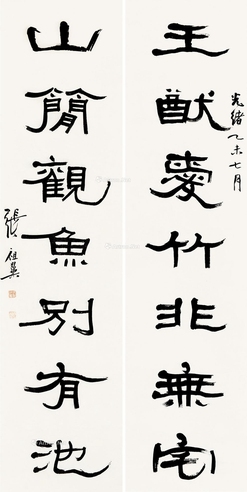 光緒乙未七月
王猷愛竹非無宅
山簡觀魚別有池
張祖翼